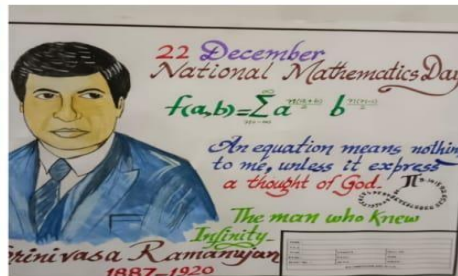 22 December
National Mathematics Day
f(a,b)=∑ a b
An equation means nothin
to me, unless it express
a thought of God.
π
The man who knew
Infinity
Srinivasa Ramanujan
1887-1920